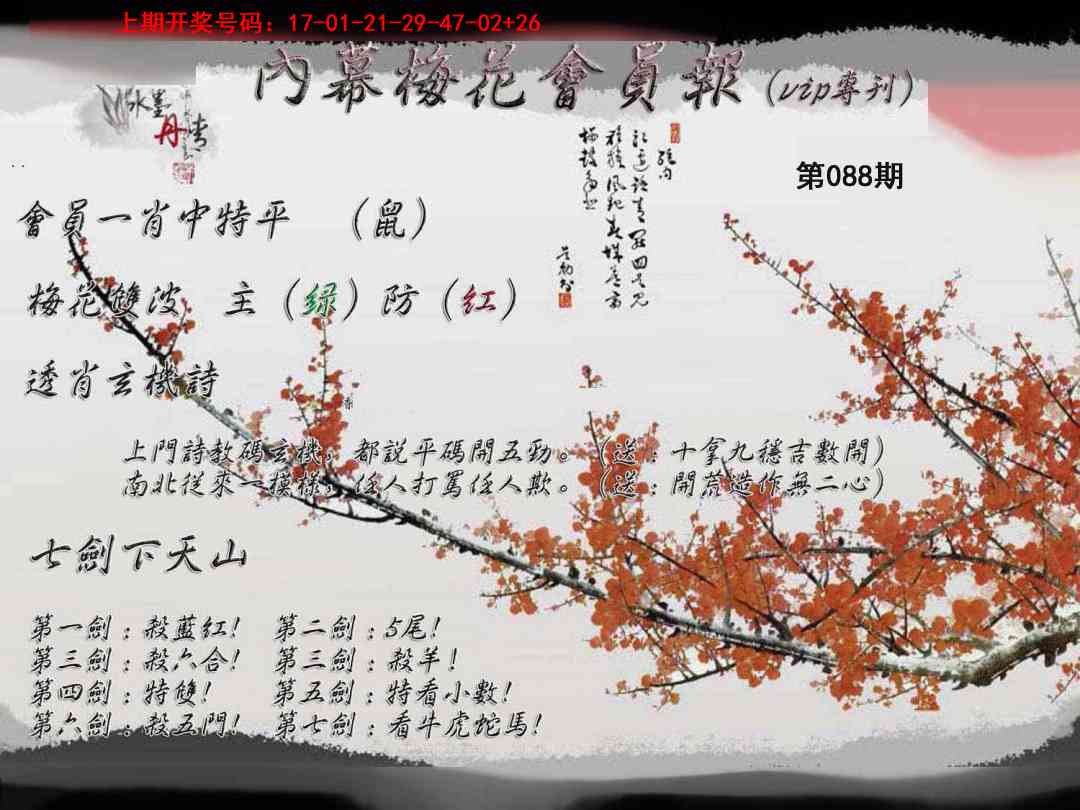 上期开奖号码：17-01-21-29-47-02+26
內幕梅花會員報（vip專刊）
水墨
丹青
第088期
會員一肖中特平 （鼠）
梅花雙波 主（绿）防（红）
透肖玄機詩
上門詩教碼玄機，都説平碼開五勁。（送：十拿九穩吉數開）
南北從來一模樣，任人打罵任人欺。（送：開荒造作無二心）
七劍下天山
第一劍：殺藍紅！ 第二劍：5尾！
第三劍：殺六合！ 第三劍：殺羊！
第四劍：特雙！ 第五劍：特看小數！
第六劍：殺五門！ 第七劍：看牛虎蛇馬！